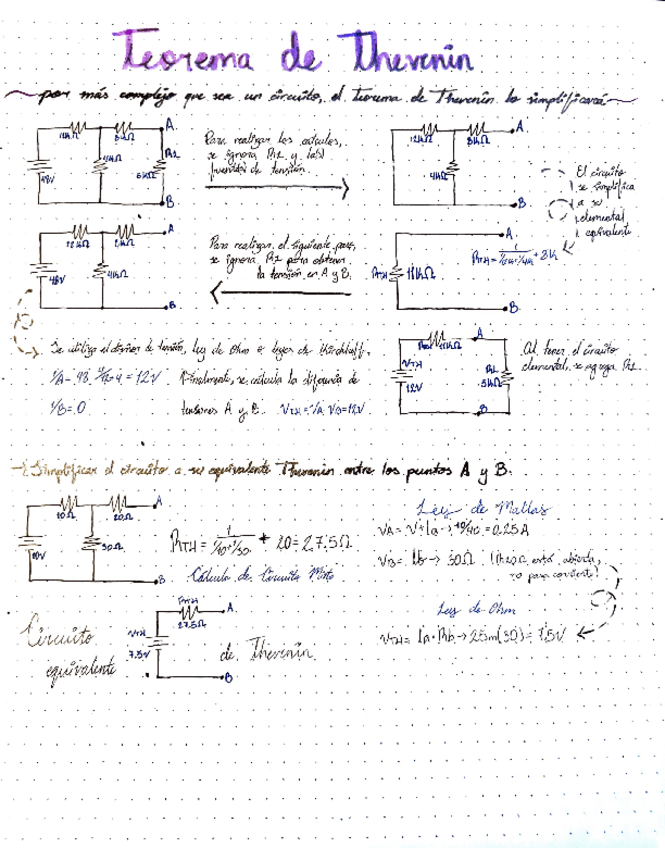 Teorema de Thevenin
por más complejo que sea un circuito, el teorema de Thevenin lo simplificará
12KΩ 8KΩ A
4KΩ RL
48V 5KΩ
B
Para realizar los cálculos,
se ignora RL y la(s)
fuente(s) de tensión.
12KΩ 8KΩ A
4KΩ
B
El circuito
se simplifica
a su
elemental
equivalente
12KΩ 8KΩ A
48V 4KΩ
B
Para realizar el siguiente paso,
se ignora RL para obtener
la tensión en A y B.
A
RTH 11KΩ
B
RTH = 1/ + 8K
Se utiliza el divisor de tensión, ley de Ohm o leyes de Kirchhoff.
VA = 48 = 12V Finalmente, se calcula la diferencia de
VB = 0 tensiones A y B. VTH = VA VB = 12V
RTH 11KΩ A
VTH RL
12V 5KΩ
B
Al tener el circuito
elemental, se agrega RL.
Simplificar el circuito a su equivalente Thevenin entre los puntos A y B.
10Ω 20Ω A
10V 30Ω
B
RTH = 1/1/10+1/30 + 20 = 27.5Ω
Cálculo de Circuito Mixto
Ley de Mallas
10/40 = 0.25A
30Ω (R20Ω está abierta,
no pasa corriente)
Ley de Ohm
VTH = Ia · Rb → 25m(30) = 7.5V
Circuito
equivalente
RTH
27.5Ω A
VTH
7.5V
B
de Thevenin